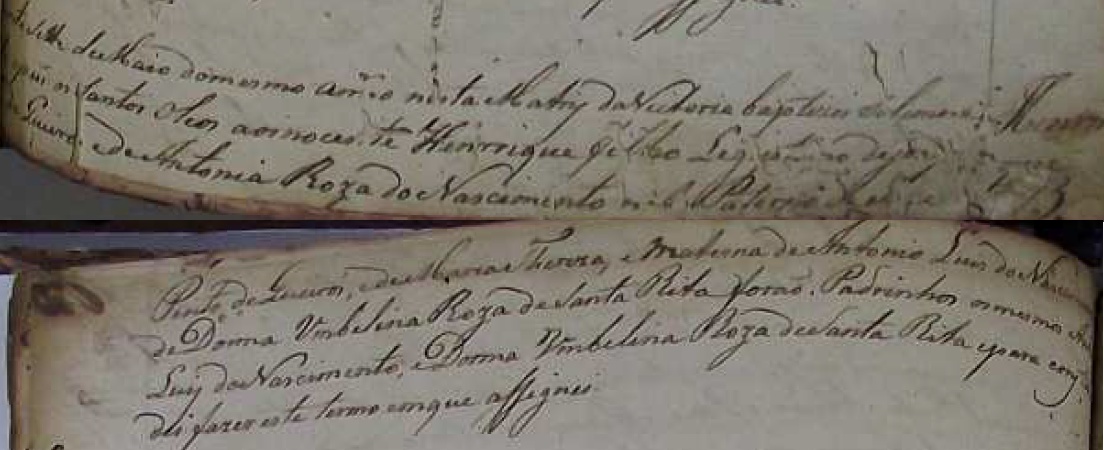 assignei.
de Maio do mesmo anno nesta Matriz da Victoria baptizei solemne
e pus os santos oleos ao innocente Henrique filho Legitimo de
Queiroz e de Antonia Roza do Nascimento neto Paterno de
Pinto de Queiros, e de Maria Thereza, e materna de Antonio Luis do Nascim
de Donna Vmbelina Roza de Santa Rita forao Padrinhos os mesmos
Luiz do Nascimento, e Donna Vmbelina Roza de Santa Rita e para
dei fazer este termo em que assignei